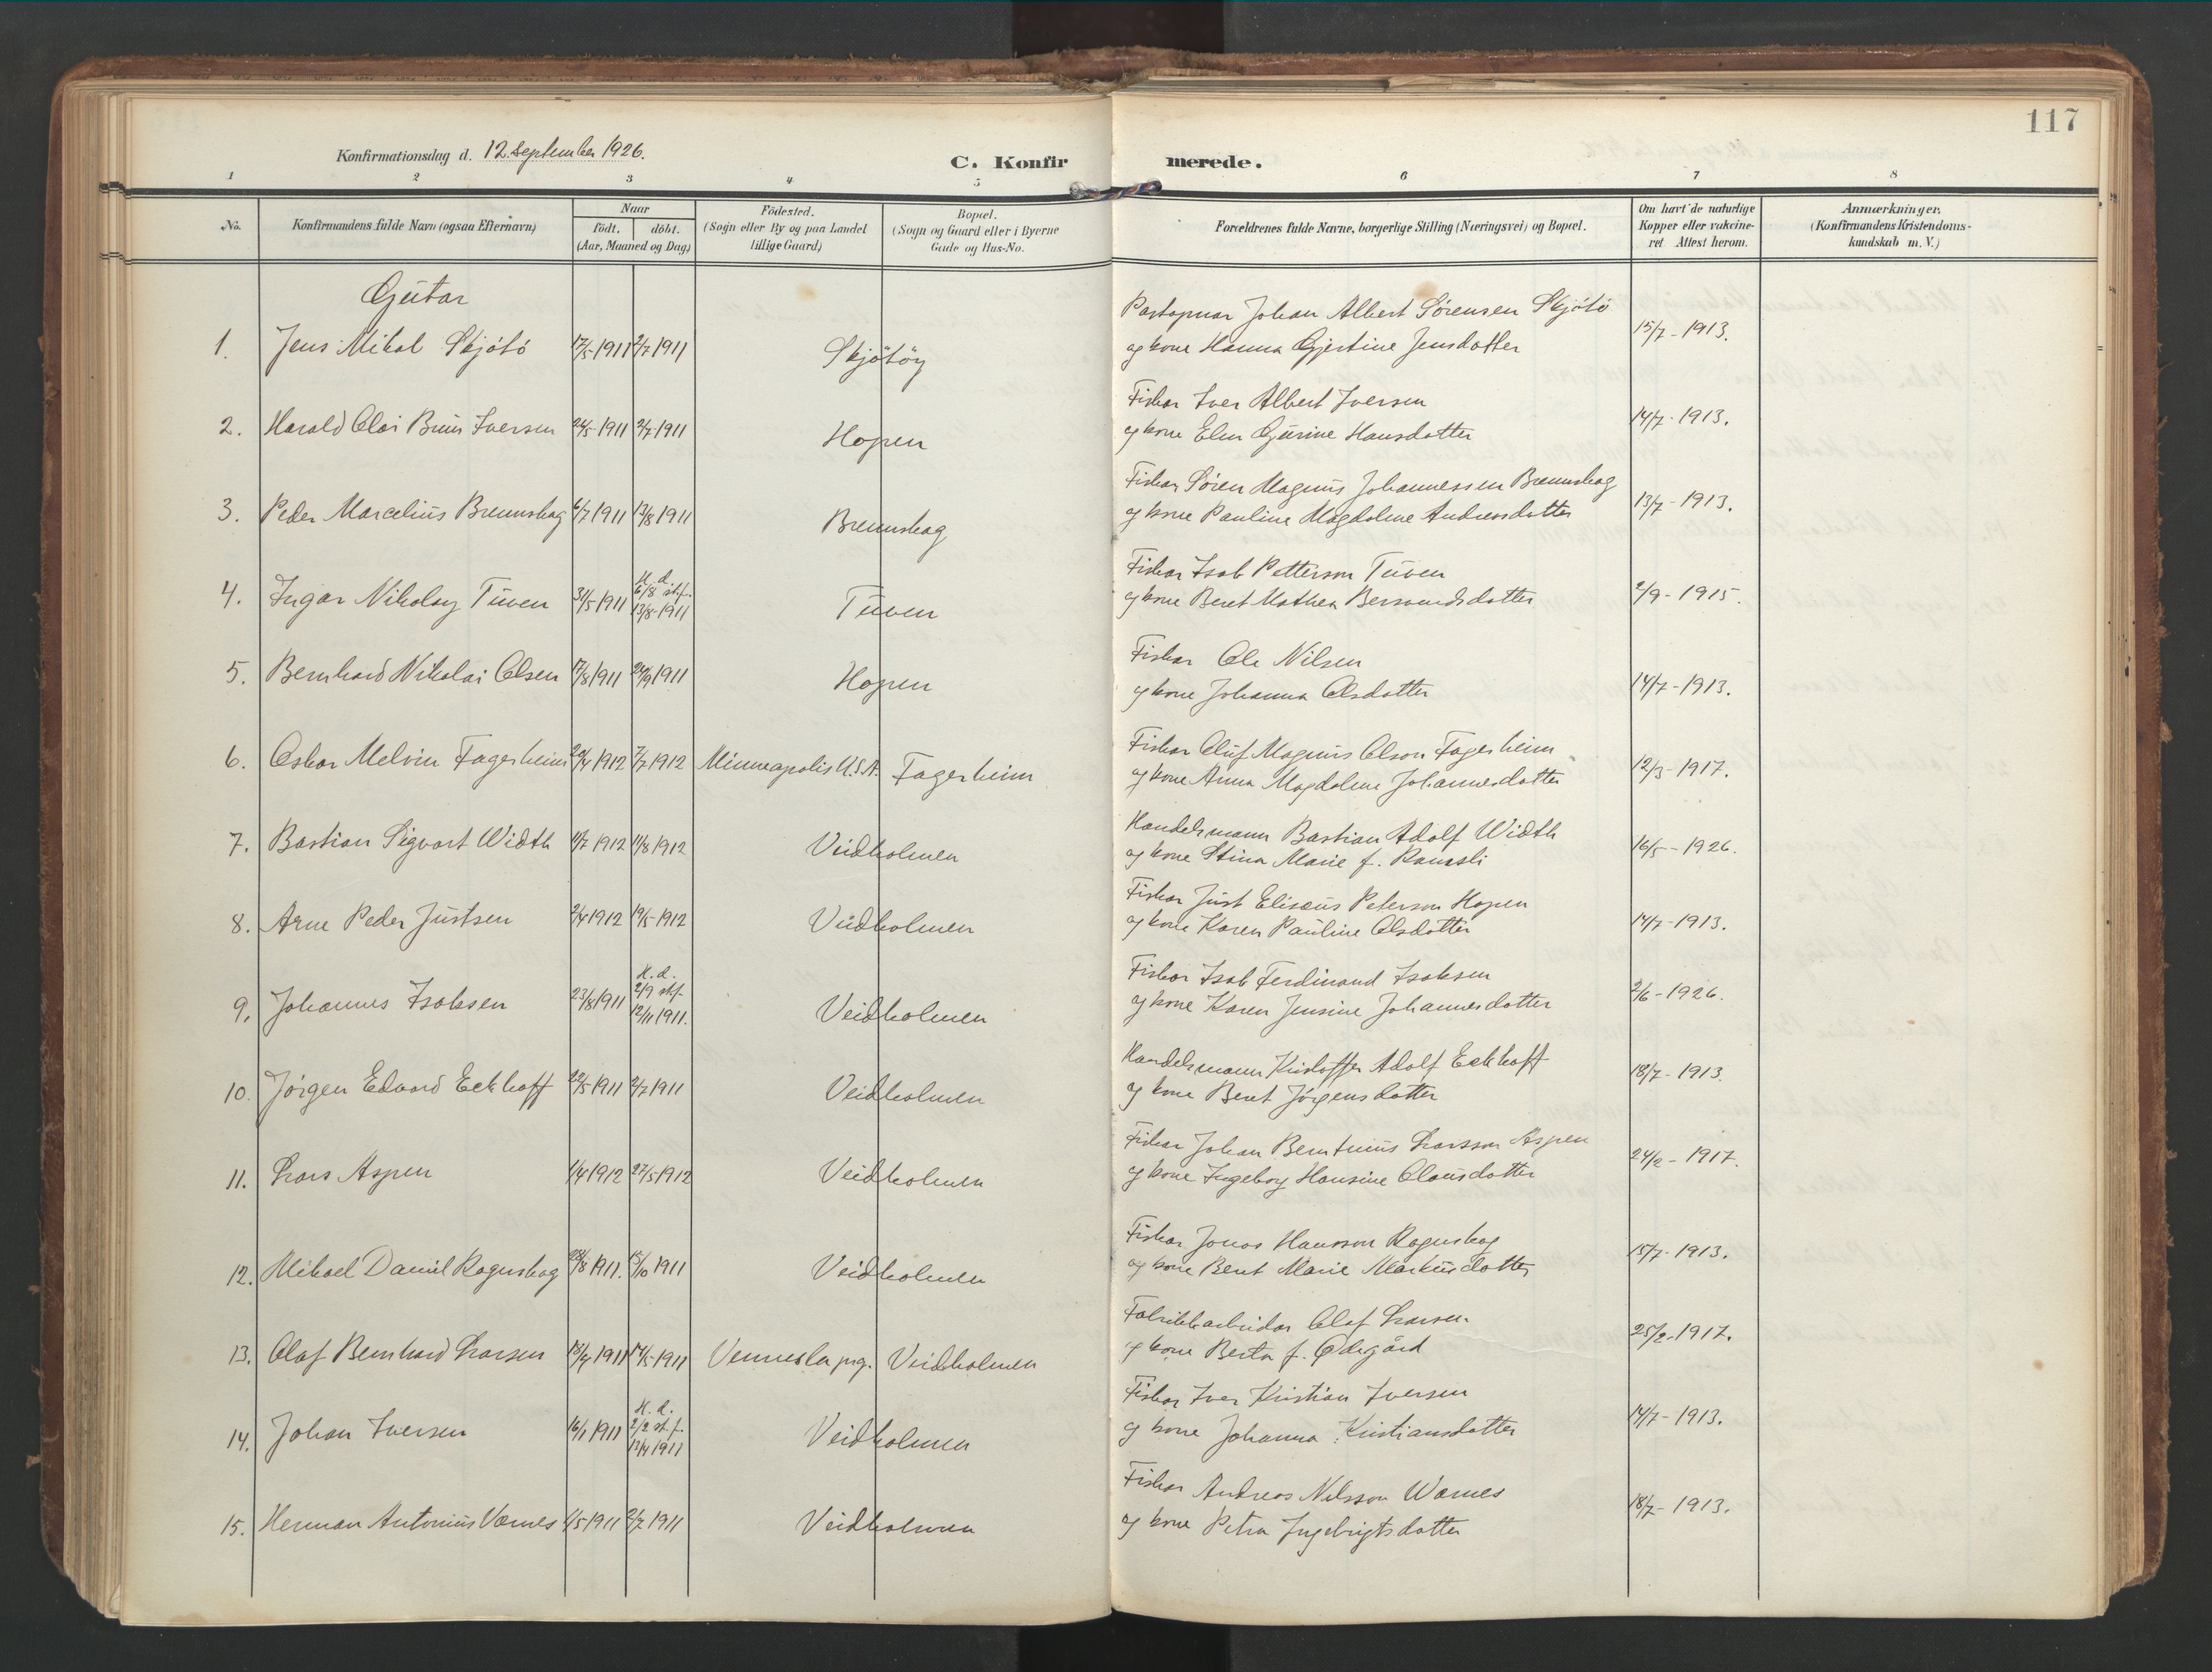 117
Konfirmationsdag d. 12. September 1926.
C. Konfirmerede.
1 2 3 4 5 6 7 8
No.
Konfirmandens fulde Navn (ogsaa Efternavn)
Naar
födt. döbt.
(Aar, Maaned og Dag)
Födested.
(Sogn eller By og paa Landet
tillige Gaard)
Bopæl.
(Sogn og Gaard eller i Byerne
Gade og Hus-No.
Forældrenes fulde Navne, borgerlige Stilling (Næringsvei) og Bopæl.
Om havt de naturlige
Kopper eller vakcine-
ret Attest herom.
Anmærkninger.
(Konfirmandens Kristendoms-
kundskab m. V.)
Gutar
1. Jens Mikal Skjötö 17/5-1911 2/7 1911 Skjötöy
Postopnar Johan Albert Sörensen Skjötö
og kone Hanna Gjertine Jensdotter 15/7-1913.
2. Harald Olai Bruun Iversen 24/5-1911 2/7 1911 Hopen
Fiskar Iver Albert Iversen
og kone Elen Gurine Hansdotter 14/7-1913.
3. Peder Marcelius Bremnskag 6/7 1911 13/8 1911 Bremnskag
Fiskar Sören Magnus Johannessen Bremnskag
og kone Pauline Magdalene Andreasdotter 13/7-1913.
4. Ingar Nikolay Tuven 31/5 1911 H.d. 6/8 st.f. 13/8-1911 Tuven
Fiskar Isak Petterson Tuven
og kone Beret Mathea Bersvendsdotter 2/9-1915.
5. Bernhard Nikolai Olsen 17/8 1911 24/9 1911 Hopen
Fiskar Ole Nilsen
og kone Johanna Olsdotter 14/7-1913.
6. Oskar Melvin Fagerheim 20/4 1912 7/7 1912 Minneapolis U.S.A. Fagerheim
Fiskar Oluf Magnus Olson Fagerheim
og kone Anna Magdalene Johannesdotter 12/3-1917.
7. Bastian Sigvart Width 11/7 1912 11/8 1912 Veidholmen
Handelsmann Bastian Adolf Width
og kone Stina Marie f. Ramsli 16/5-1926.
8. Arne Peder Justsen 2/4 1912 19/5-1912 Veidholmen
Fiskar Just Elisæus Peterson Hopen
og kone Karen Pauline Olsdotter 14/7-1913.
9. Johannes Isaksen 23/8 1911 H.d. 2/9 st.f. 12/11 1911. Veidholmen
Fiskar Isak Ferdinand Isaksen
og kone Karen Jensine Johannesdotter 2/6-1926.
10. Jörgen Edvard Eckhoff 22/5 1911 2/7 1911 Veidholmen
Handelsmann Kristoffer Adolf Eckhoff
og kone Beret Jörgensdotter 18/7-1913.
11. Lars Aspen 1/4 1912 27/5 1912 Veidholmen
Fiskar Johan Berntinus Larsson Aspen
og kone Ingeborg Hansine Clausdotter 24/2-1917.
12. Mikael Daniel Ragnskag 28/8 1911. 15/10 1911 Veidholmen
Fiskar Jonas Hansson Ragnskag
og kone Beret Marie Markusdotter 15/7-1913.
13. Olaf Bernhard Larsen 18/4 1911 14/5-1911 Vennesla prg. Veidholmen
Fabrikkarbeidar Olaf Larsen
og kone Berta f. Ødegård 25/2-1917.
14. Johan Iversen 16/1 1911 H.d. 2/2 st.f. 13/4 1911 Veidholmen
Fiskar Iver Kristian Iversen
og kone Johanna Kristiansdotter 14/7-1913.
15. Herman Antonius Værnes 1/5 1911 2/7 1911 Veidholmen
Fiskar Andreas Nilsson Wærnes
og kone Petra Ingebrigtsdotter 18/7-1913.